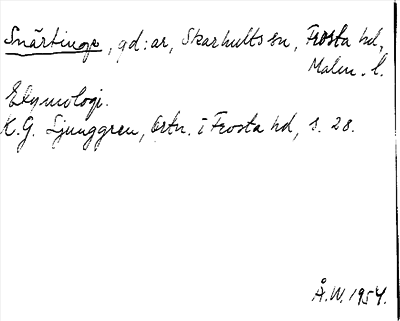 Snärtinge, gd:ar, Skarhults sn, Frosta hd,
Malm. l.
Etymologi.
K.G. Ljunggren, Ortn. i Frosta hd, s. 28.
Å.W. 1954.